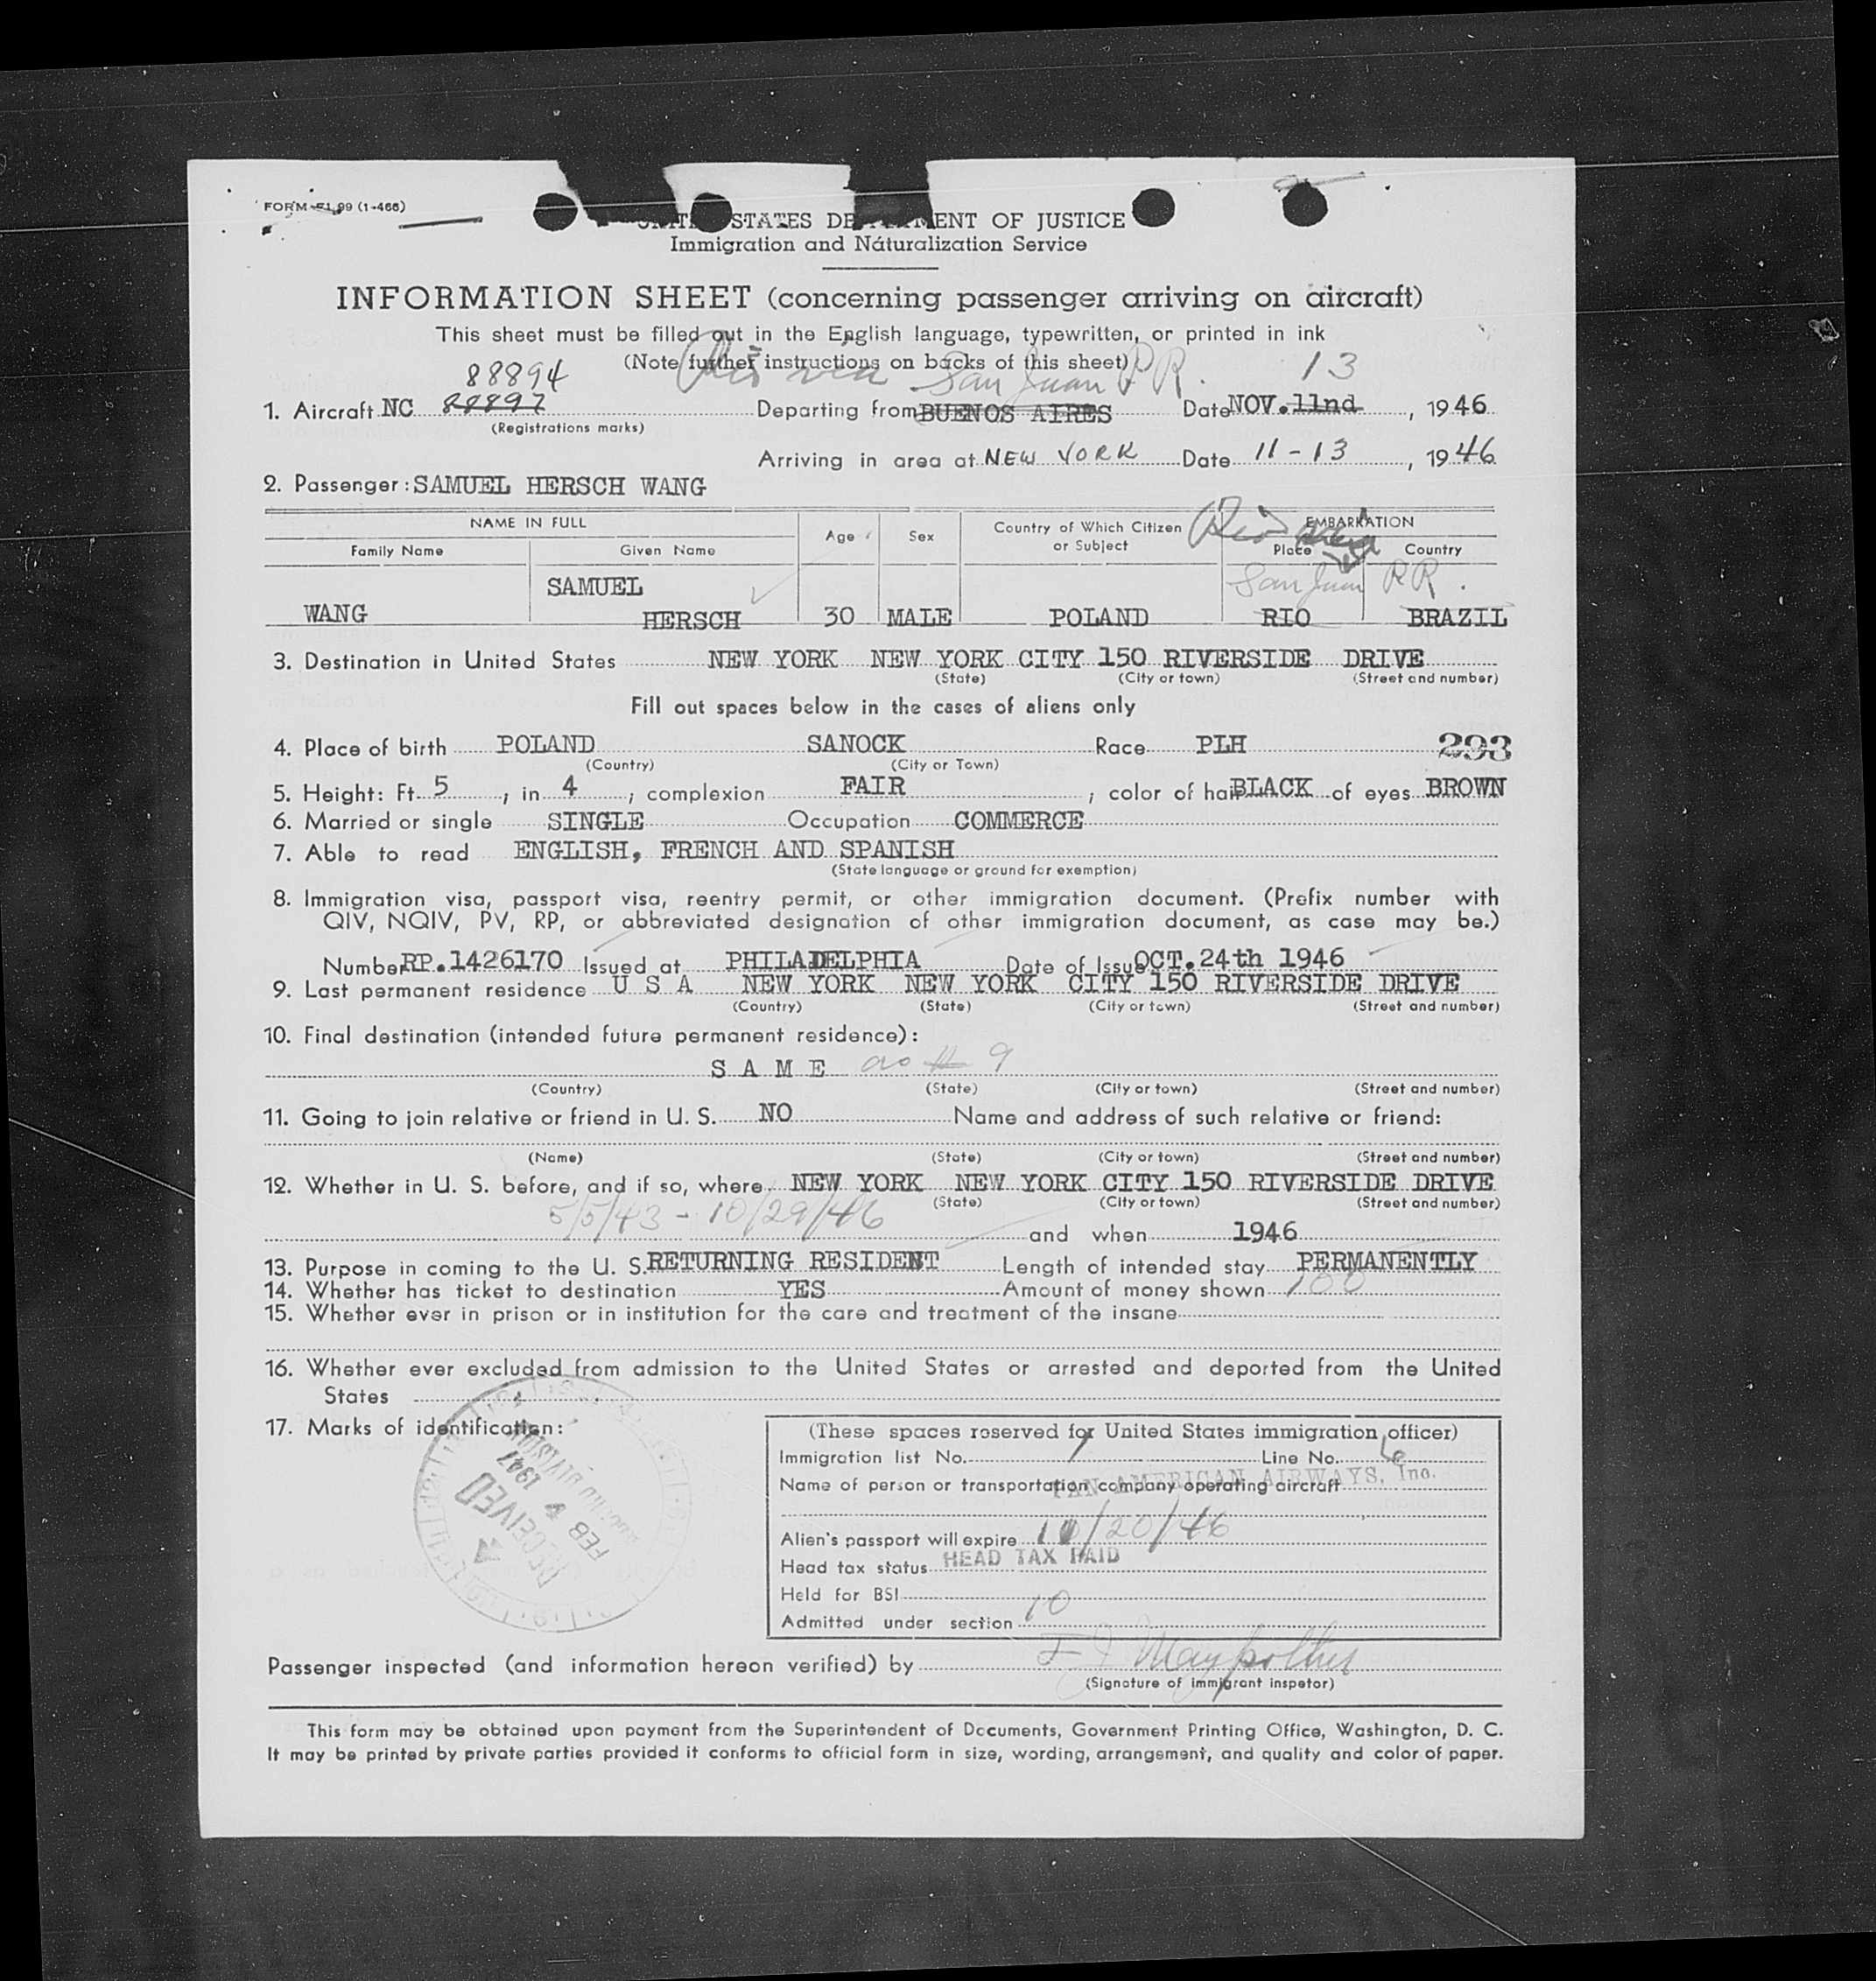 FORM I-99 (1-466)
UNITED STATES DEPARTMENT OF JUSTICE
Immigration and Naturalization Service
INFORMATION SHEET (concerning passenger arriving on aircraft)
This sheet must be filled out in the English language, typewritten, or printed in ink
(Note further instructions on backs of this sheet)
88894 via San Juan P R. 13
1. Aircraft NC 88897 Departing from BUENOS AIRES Date NOV. 11nd, 1946
(Registrations marks)
Arriving in area at NEW YORK Date 11-13, 1946
2. Passenger: SAMUEL HERSCH WANG
NAME IN FULL Age Sex Country of Which Citizen or Subject Rio EMBARKATION
Family Name Given Name Place Country
SAMUEL San Juan P R.
WANG HERSCH 30 MALE POLAND RIO BRAZIL
3. Destination in United States NEW YORK NEW YORK CITY 150 RIVERSIDE DRIVE
(State) (City or town) (Street and number)
Fill out spaces below in the cases of aliens only
4. Place of birth POLAND SANOCK Race PLH 293
(Country) (City or Town)
5. Height: Ft. 5, in 4; complexion FAIR; color of hair BLACK of eyes BROWN
6. Married or single SINGLE Occupation COMMERCE
7. Able to read ENGLISH, FRENCH AND SPANISH
(State language or ground for exemption)
8. Immigration visa, passport visa, reentry permit, or other immigration document. (Prefix number with
QIV, NQIV, PV, RP, or abbreviated designation of other immigration document, as case may be.)
Number RP.1426170 Issued at PHILADELPHIA Date of Issue OCT.24th 1946
9. Last permanent residence U S A NEW YORK NEW YORK CITY 150 RIVERSIDE DRIVE
(Country) (State) (City or town) (Street and number)
10. Final destination (intended future permanent residence):
S A M E as # 9
(Country) (State) (City or town) (Street and number)
11. Going to join relative or friend in U. S. NO Name and address of such relative or friend:
(Name) (State) (City or town) (Street and number)
12. Whether in U. S. before, and if so, where NEW YORK NEW YORK CITY 150 RIVERSIDE DRIVE
(State) (City or town) (Street and number)
5/5/43 - 10/29/46
and when 1946
13. Purpose in coming to the U. S. RETURNING RESIDENT Length of intended stay PERMANENTLY
14. Whether has ticket to destination YES Amount of money shown 100
15. Whether ever in prison or in institution for the care and treatment of the insane
16. Whether ever excluded from admission to the United States or arrested and deported from the United
States
17. Marks of identification:
RECEIVED
FEB 4 1947
(These spaces reserved for United States immigration officer)
Immigration list No. 1 Line No. 6
Name of person or transportation company operating aircraft PAN AMERICAN AIRWAYS, Inc.
Alien's passport will expire /20/46
Head tax status HEAD TAX PAID
Held for BSI
Admitted under section 10
Passenger inspected (and information hereon verified) by
(Signature of immigrant inspetor)
This form may be obtained upon payment from the Superintendent of Documents, Government Printing Office, Washington, D. C.
It may be printed by private parties provided it conforms to official form in size, wording, arrangement, and quality and color of paper.